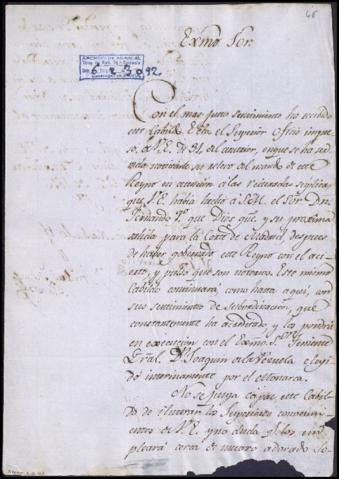 46
Exmô Sor.
Con el mas justo sentimiento ha recibido
este Cabildo el Superior Oficio impre-
so, de V.E. de 24 del anterior, en que se ha
relevo del mando de este
Reyno en atencion à las reiteradas suplicas
que V.E. había hecho à S.M. el Sor. Dn.
Fernando 7º que Dios gûe. y su proxima
salida para la Corte de Madrid despues
de haver gobernado este Reyno con el aci-
erto, y pulso que son notorios. Este mismo
Cabildo continuará, como hasta aqui, con
sus sentimientos de subordinacion, que
constantemente ha acreditado, y los pondrá
en execucion con el Exmô. Sr. Teniente
Gral. Dn. Joaquin de la Pezuela elegi-
do interinamente por el Monarca.
No se juzga capaz este Cabil-
do de
de V.E. y no duda que los em-
pleará cerca de nuestro adorado So-